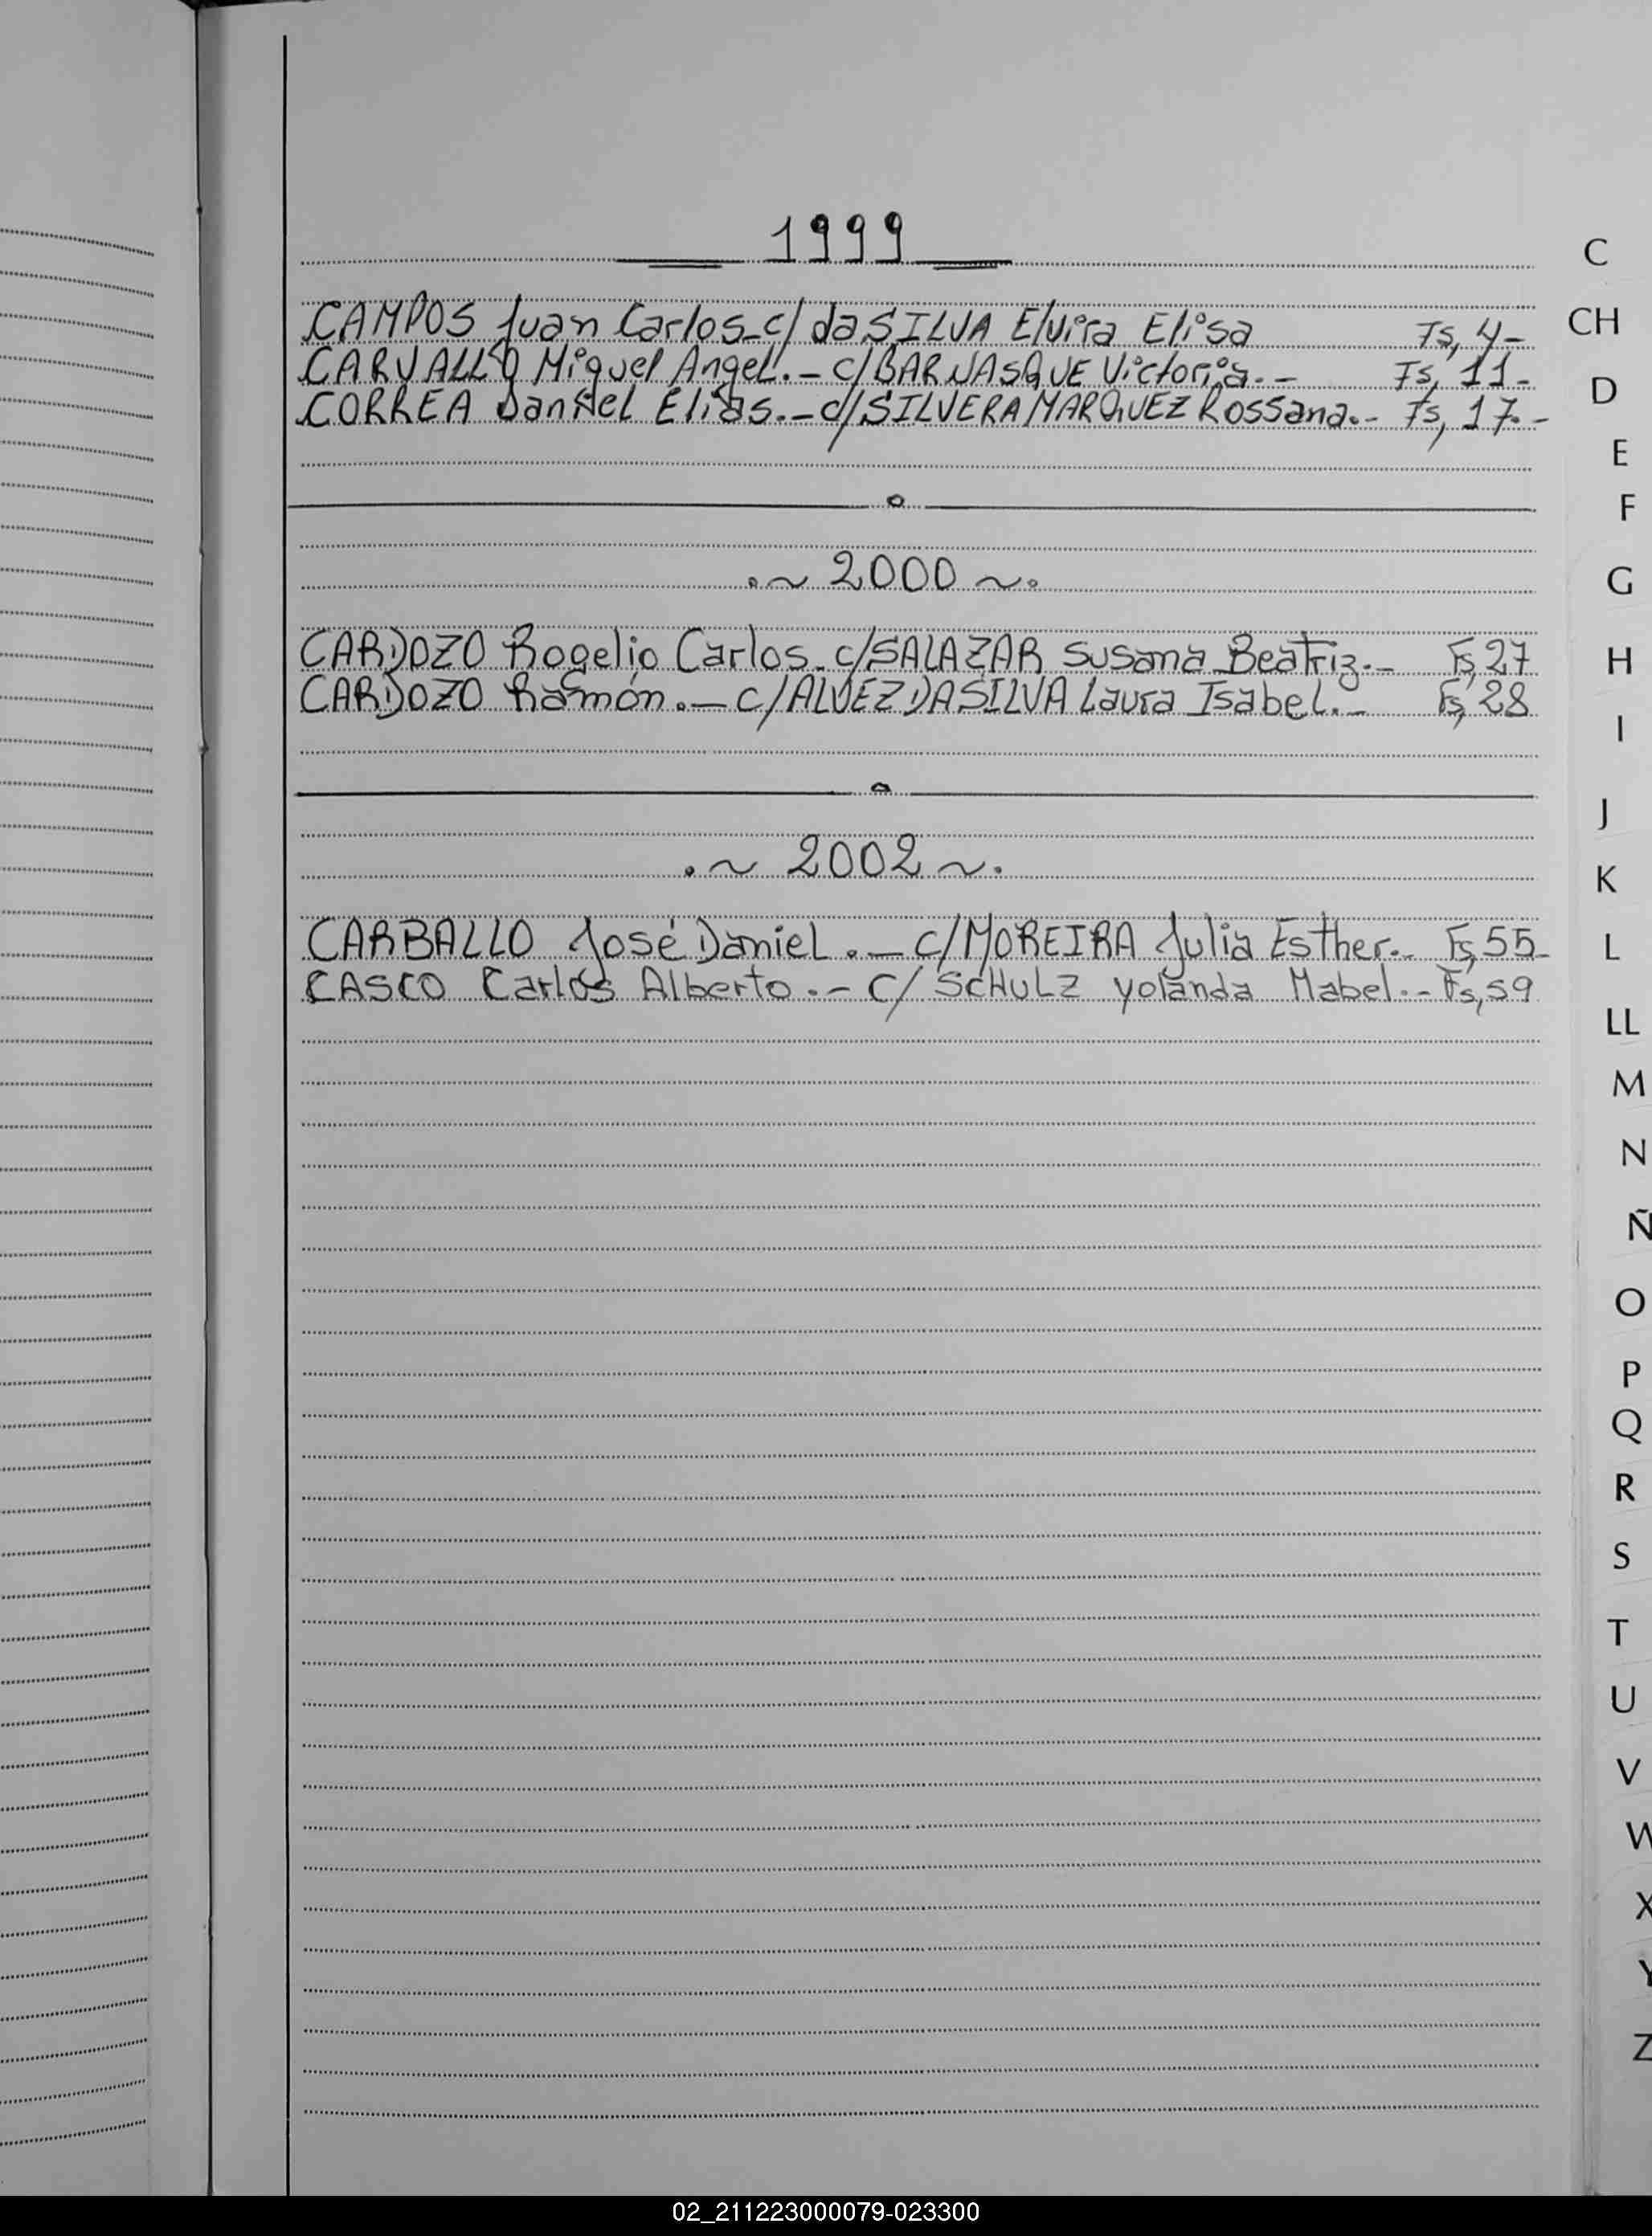 1999
CAMPOS Juan Carlos-c/ da SILVA Elvira Elisa Fs, 4-
CARVALLO Miguel Angel.- c/BARNASQUE Victoria.- Fs, 11-
CORREA Daniel Elias.- c/SILVERA MARQUEZ Rossana.- Fs, 17.-
.~ 2000 ~.
CARDOZO Rogelio Carlos-c/SALAZAR Susana Beatriz.- Fs, 27
CARDOZO Ramón.- c/ALVEZ DA SILVA Laura Isabel.- Fs, 28
.~ 2002 ~.
CARBALLO José Daniel.- c/MOREIRA Julia Esther.- Fs, 55-
CASCO Carlos Alberto.- c/ SCHULZ Yolanda Mabel.- Fs, 59
C
CH
D
E
F
G
H
I
J
K
L
LL
M
N
Ñ
O
P
Q
R
S
T
U
V
W
X
Y
Z
02_211223000079-023300